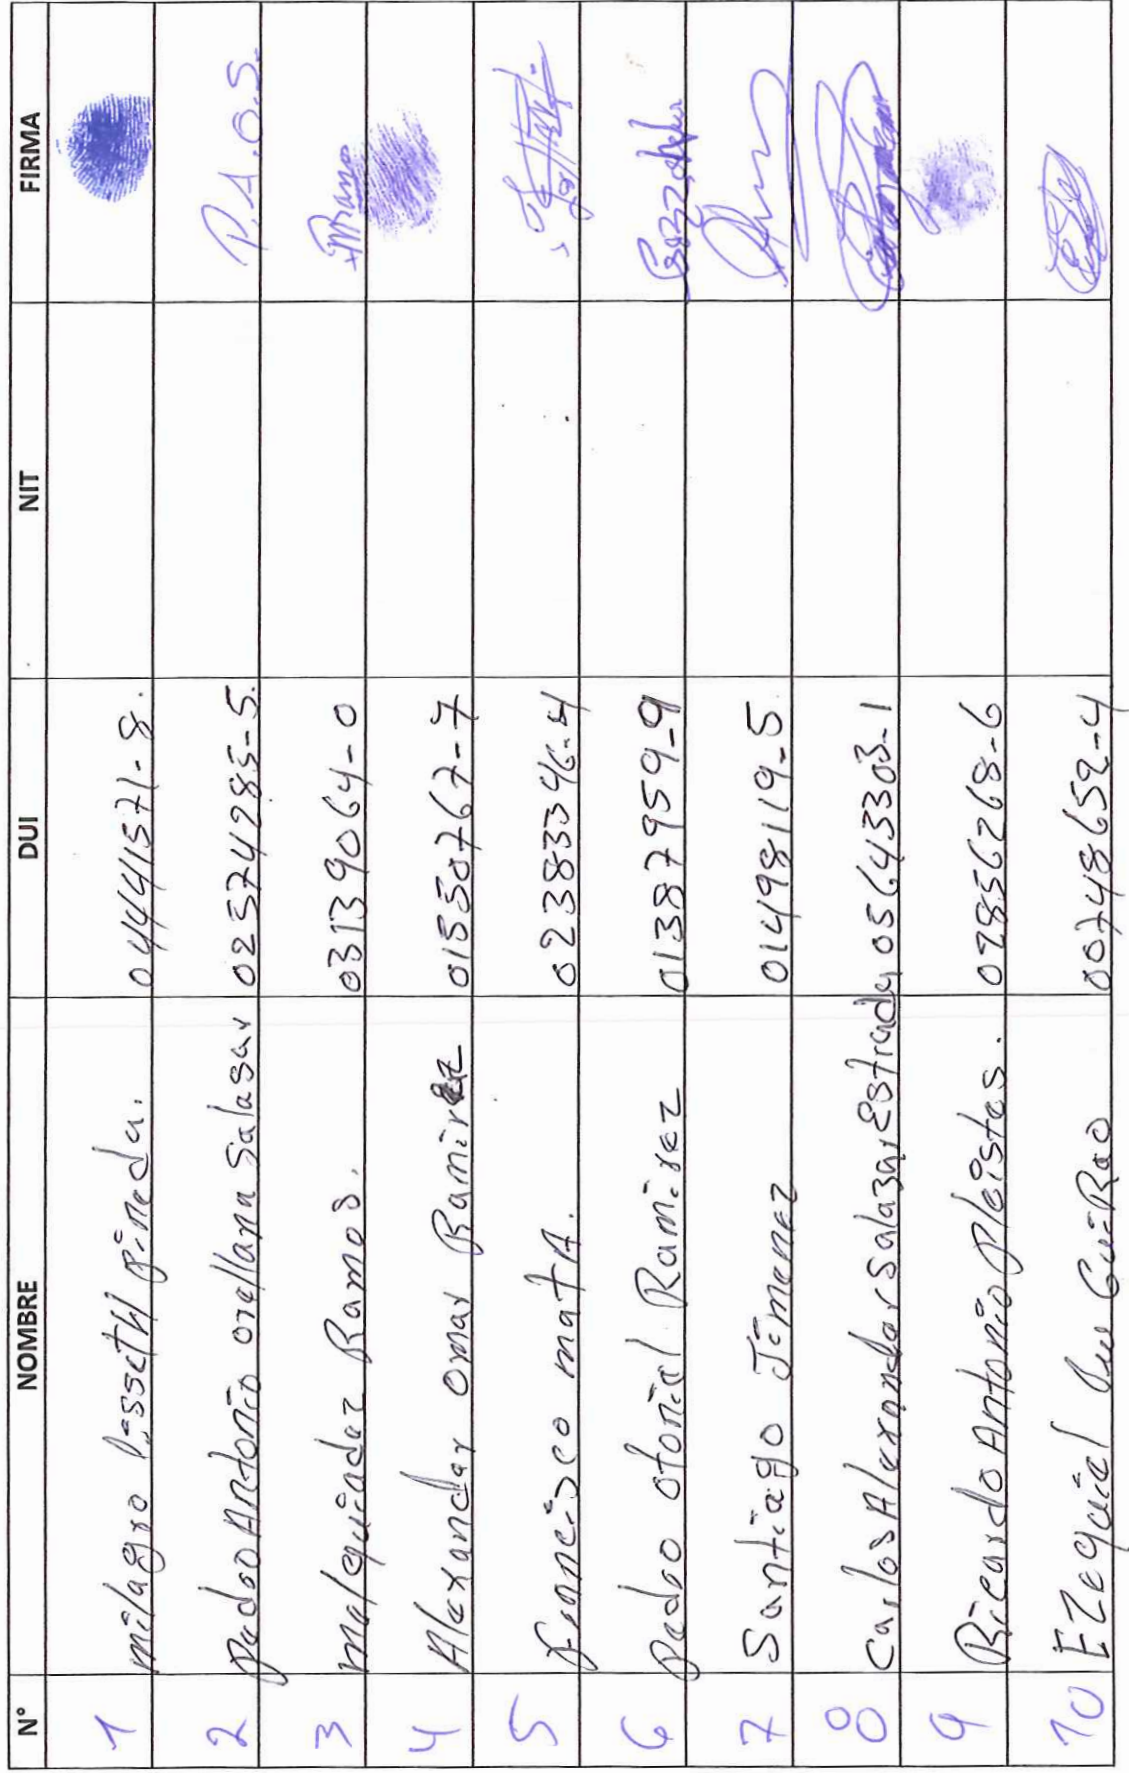 N° NOMBRE DUI NIT FIRMA
1 milagro Lissethl pineda. 04441571-8.
2 Pedro Antonio orellana Salasar 02574285-5. P.A.O.S.
3 melquiadez Ramos. 03139064-0
4 Alexander omar Ramirez 01550767-7
5 francisco matA. 02383346-4
6 Pedro otoniel Ramirez 01387959-9
7 Santiago Jimenez 01498119-5
8 Carlos Alexander Salazar Estrada 05643303-1
9 Ricardo Antonio pleistes. 02856268-6
10 EZequiel 00748652-4